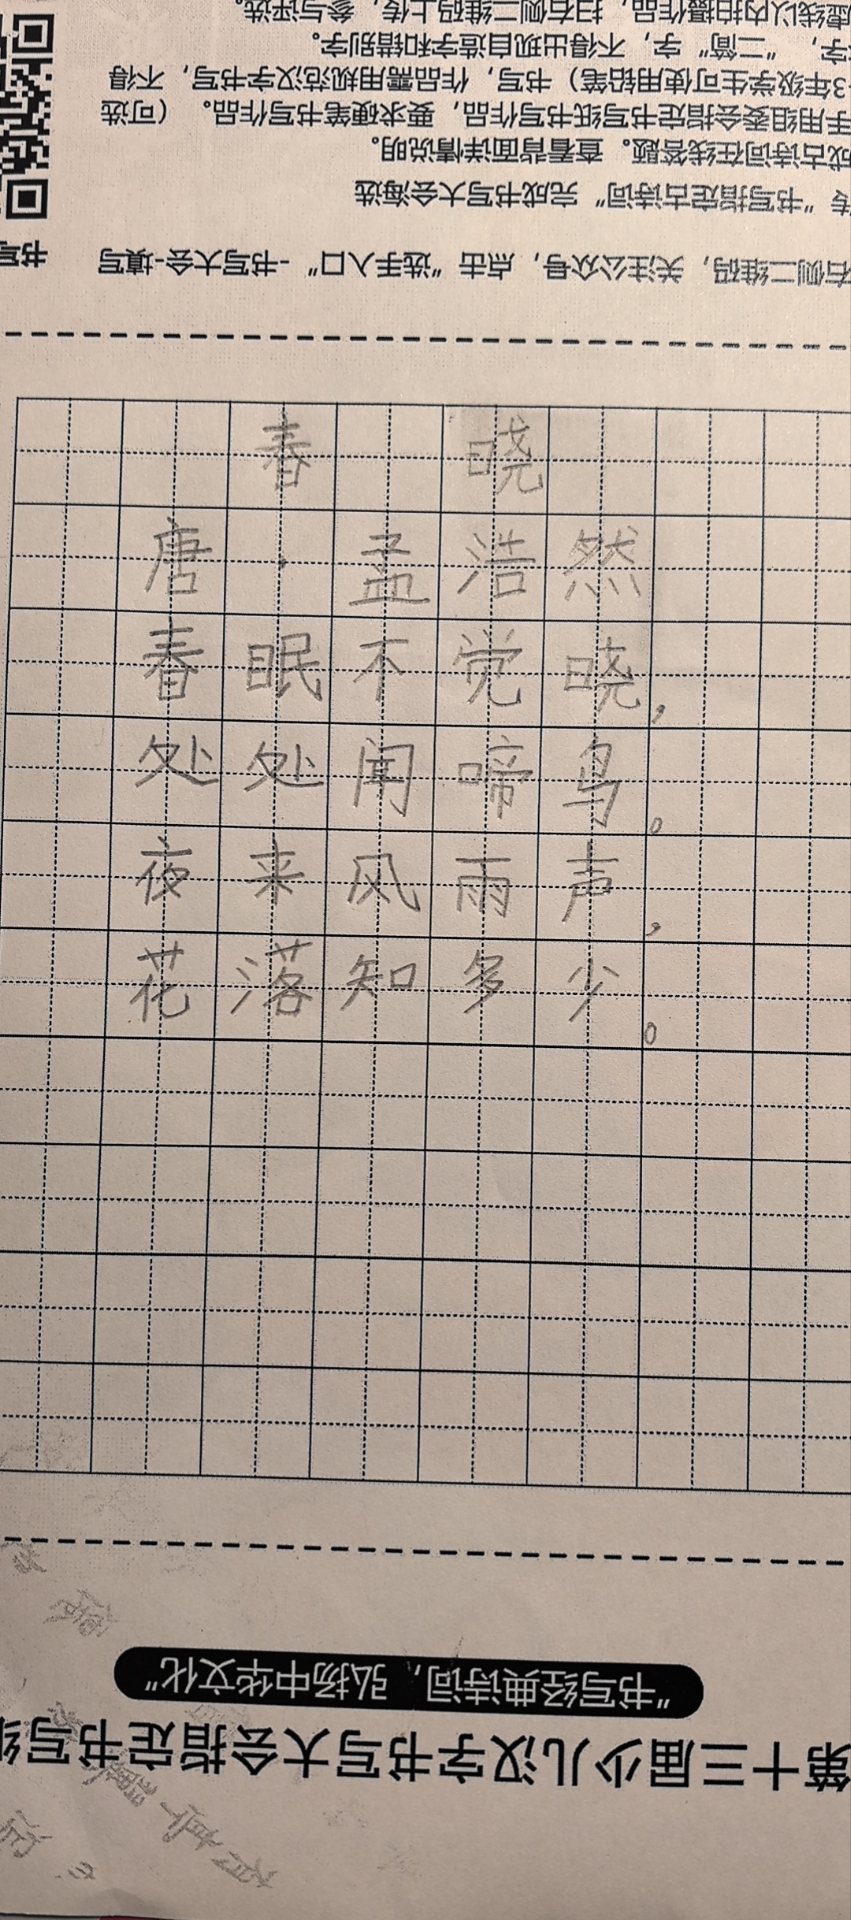 第十三届少儿汉字书写大会指定书写纸
“书写经典诗词，弘扬中华文化”
春晓
唐·孟浩然
春眠不觉晓，
处处闻啼鸟。
夜来风雨声，
花落知多少。
右侧二维码，关注公众号，点击“选手入口”-书写大会-填写
书写
传“书写指定古诗词”完成书写大会海选
成古诗词在线答题。查看背面详情说明。
手用组委会指定书写纸书写作品，要求硬笔书写作品。（可选
3年级学生可使用铅笔）书写，作品需用规范汉字书写，不得
字，“二简”字，不得出现自造字和错别字。
虚线以内拍摄作品，扫右侧二维码上传，参与评选。